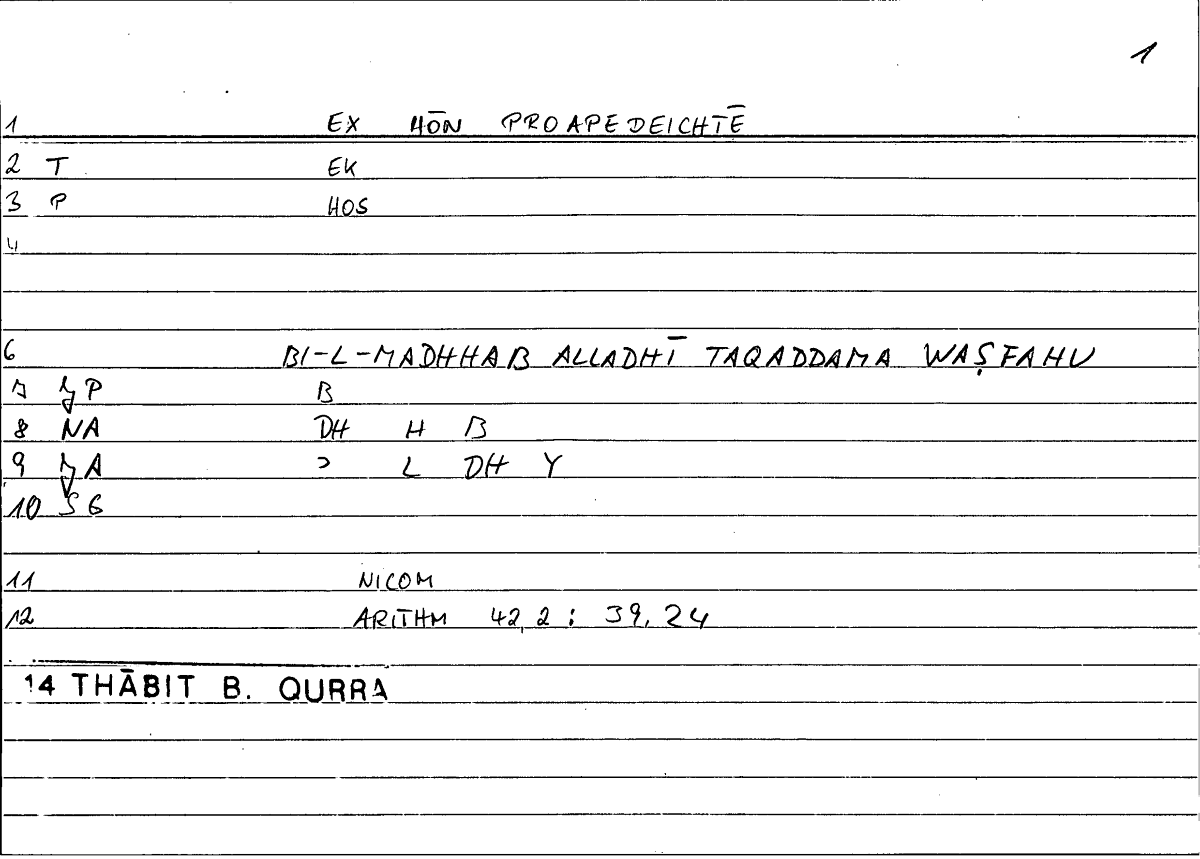 1
1 EX HŌN PROAPEDEICHTĒ
2 T EK
3 P HOS
4
6 BI-L-MADHHAB ALLADHĪ TAQADDAMA WAṢFAHU
7 P B
8 NA DH H B
9 A ɔ L DH Y
10 SG
11 NICOM
12 ARITHM 42,2 : 39,24
14 THĀBIT B. QURRA